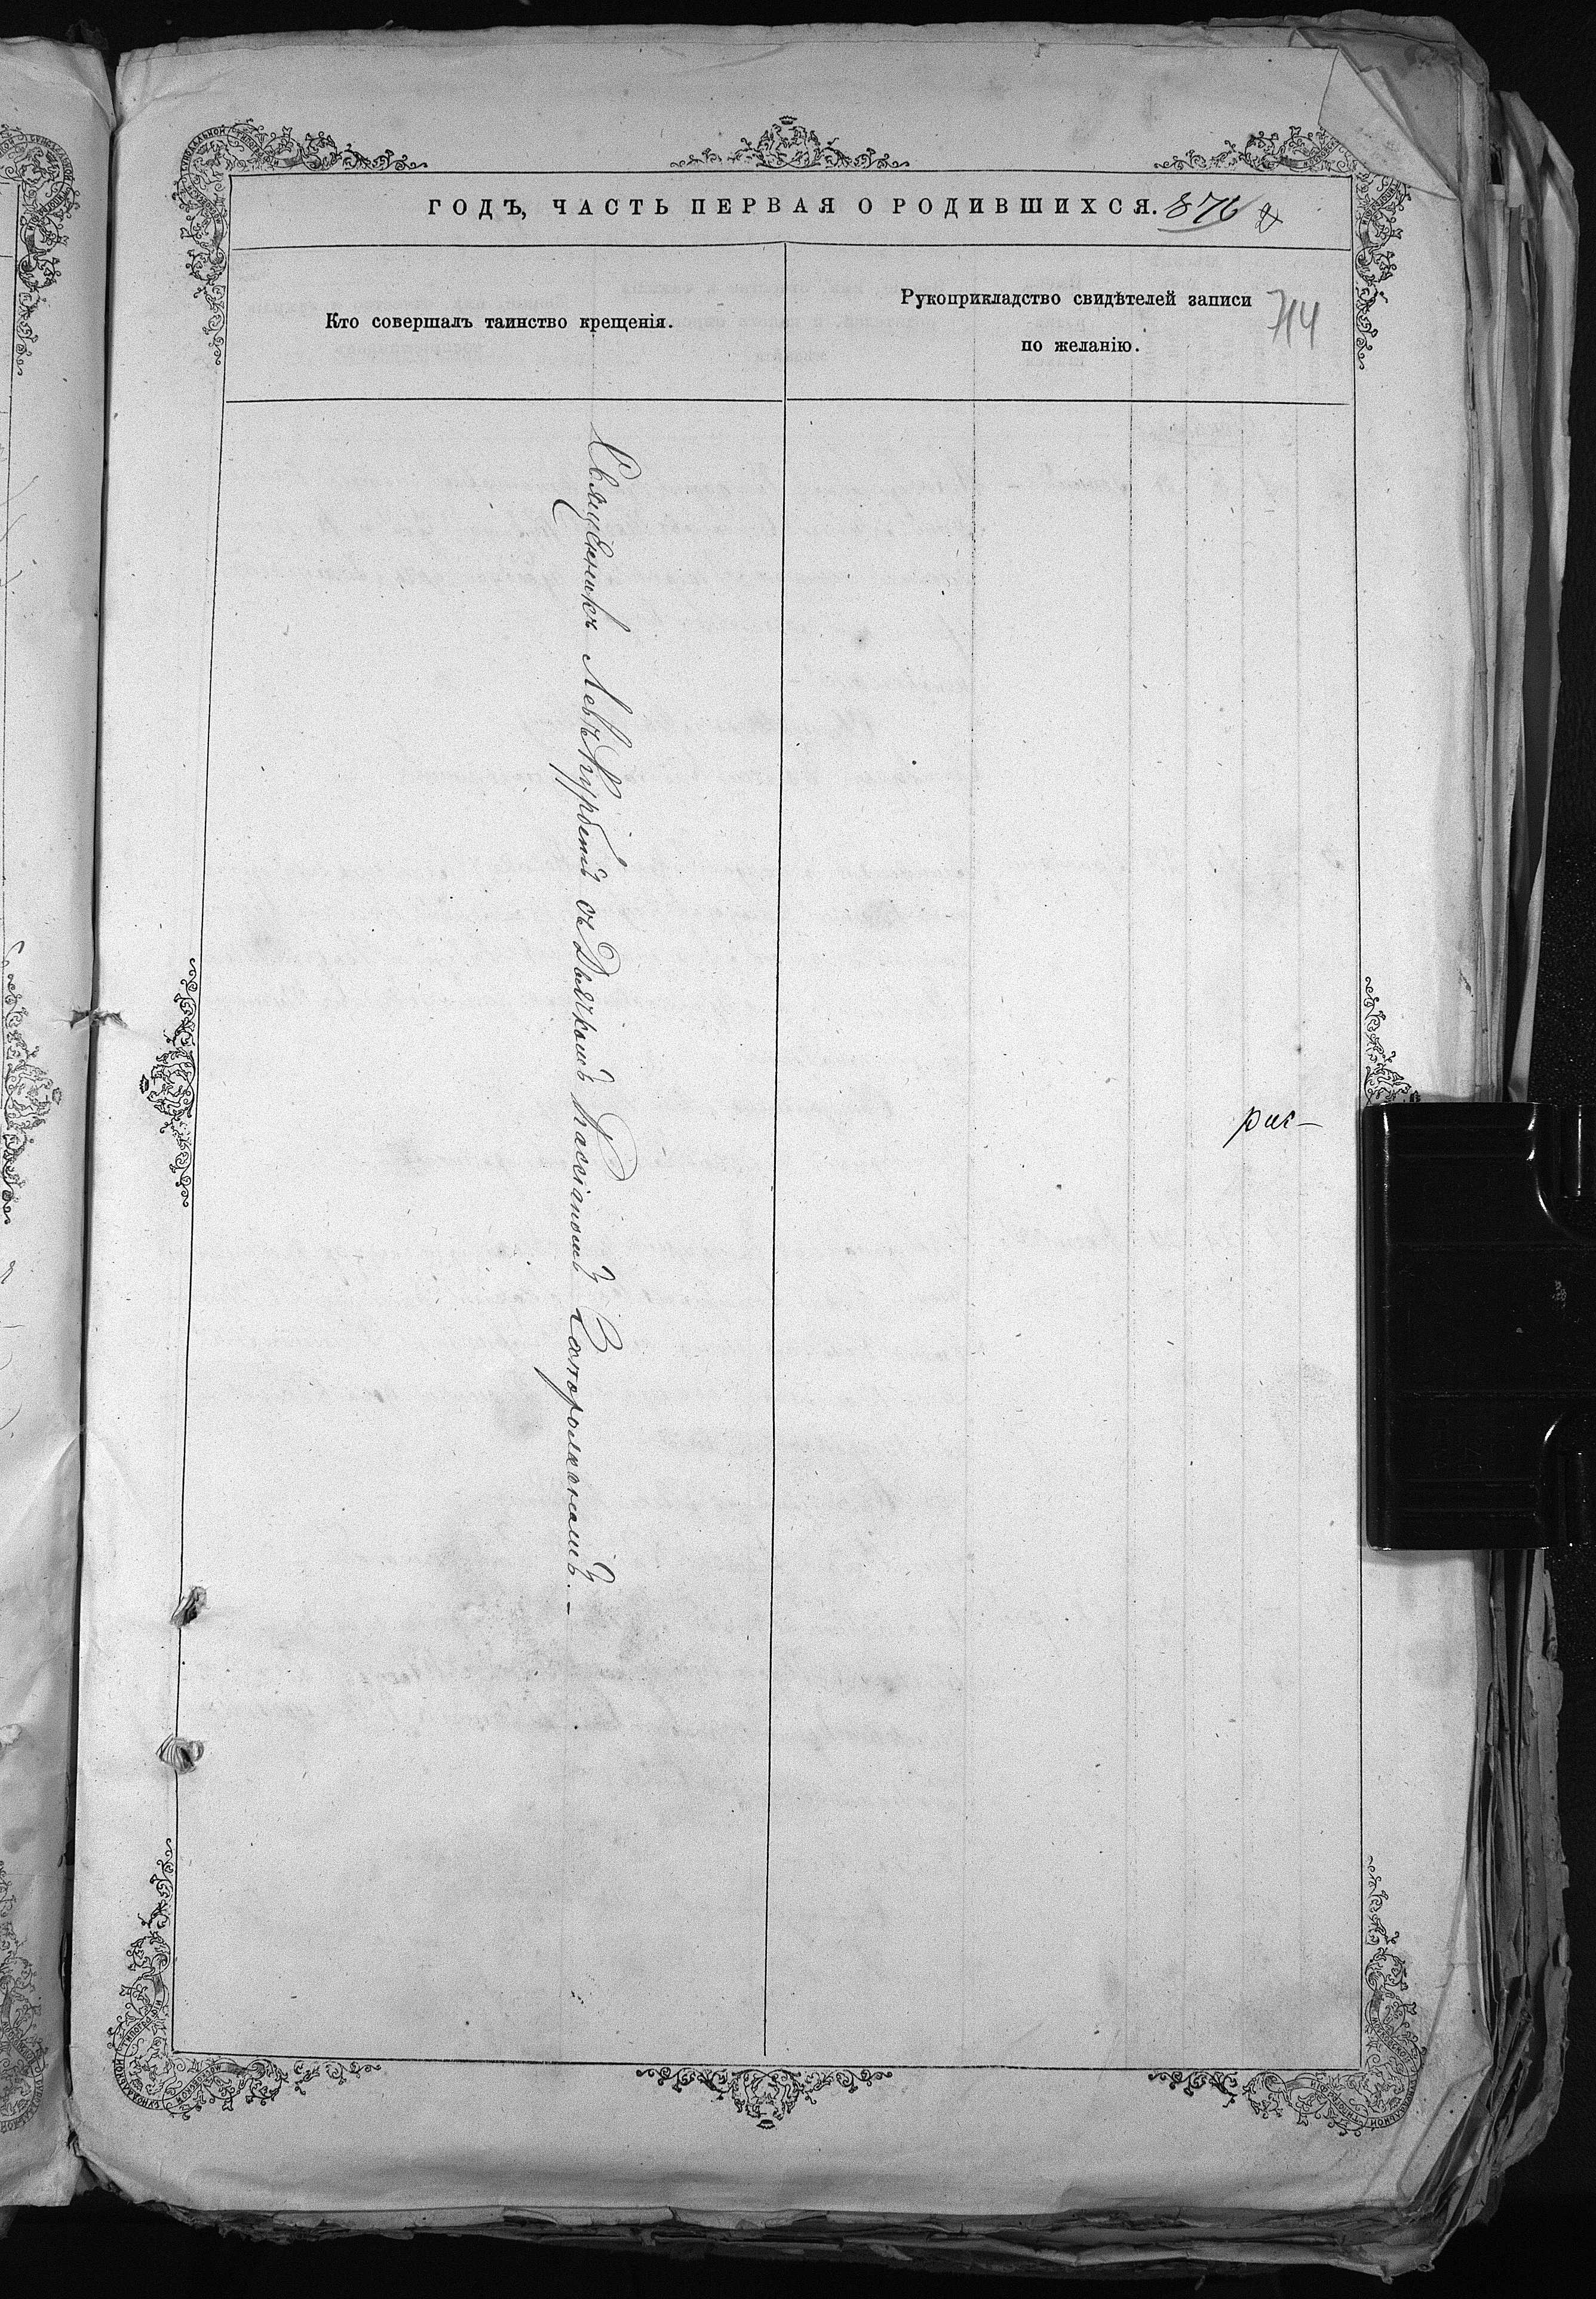 ГОДЪ, ЧАСТЬ ПЕРВАЯ О РОДИВШИХСЯ. 876
Кто совершалъ таинство крещенія.
Рукоприкладство свидѣтелей записи
по желанію.
714
Священникъ Левъ Курбетъ съ Дьячкомъ Кассіаномъ
рас-